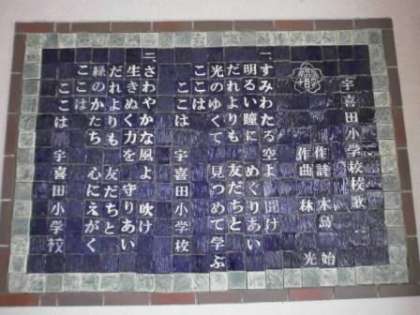 宇喜田小学校校歌
作詩 木島 始
作曲 林 光
一、すみわたる空よ 開け
明るい瞳に めぐりあい
だれよりも 友だちと
光のゆくて 見つめて学ぶ
ここは
ここは 宇喜田小学校
二、さわやかな風よ 吹け
生きぬく力を 守りあい
だれよりも 友だちと
緑のかたち 心にえがく
ここは
ここは 宇喜田小学校